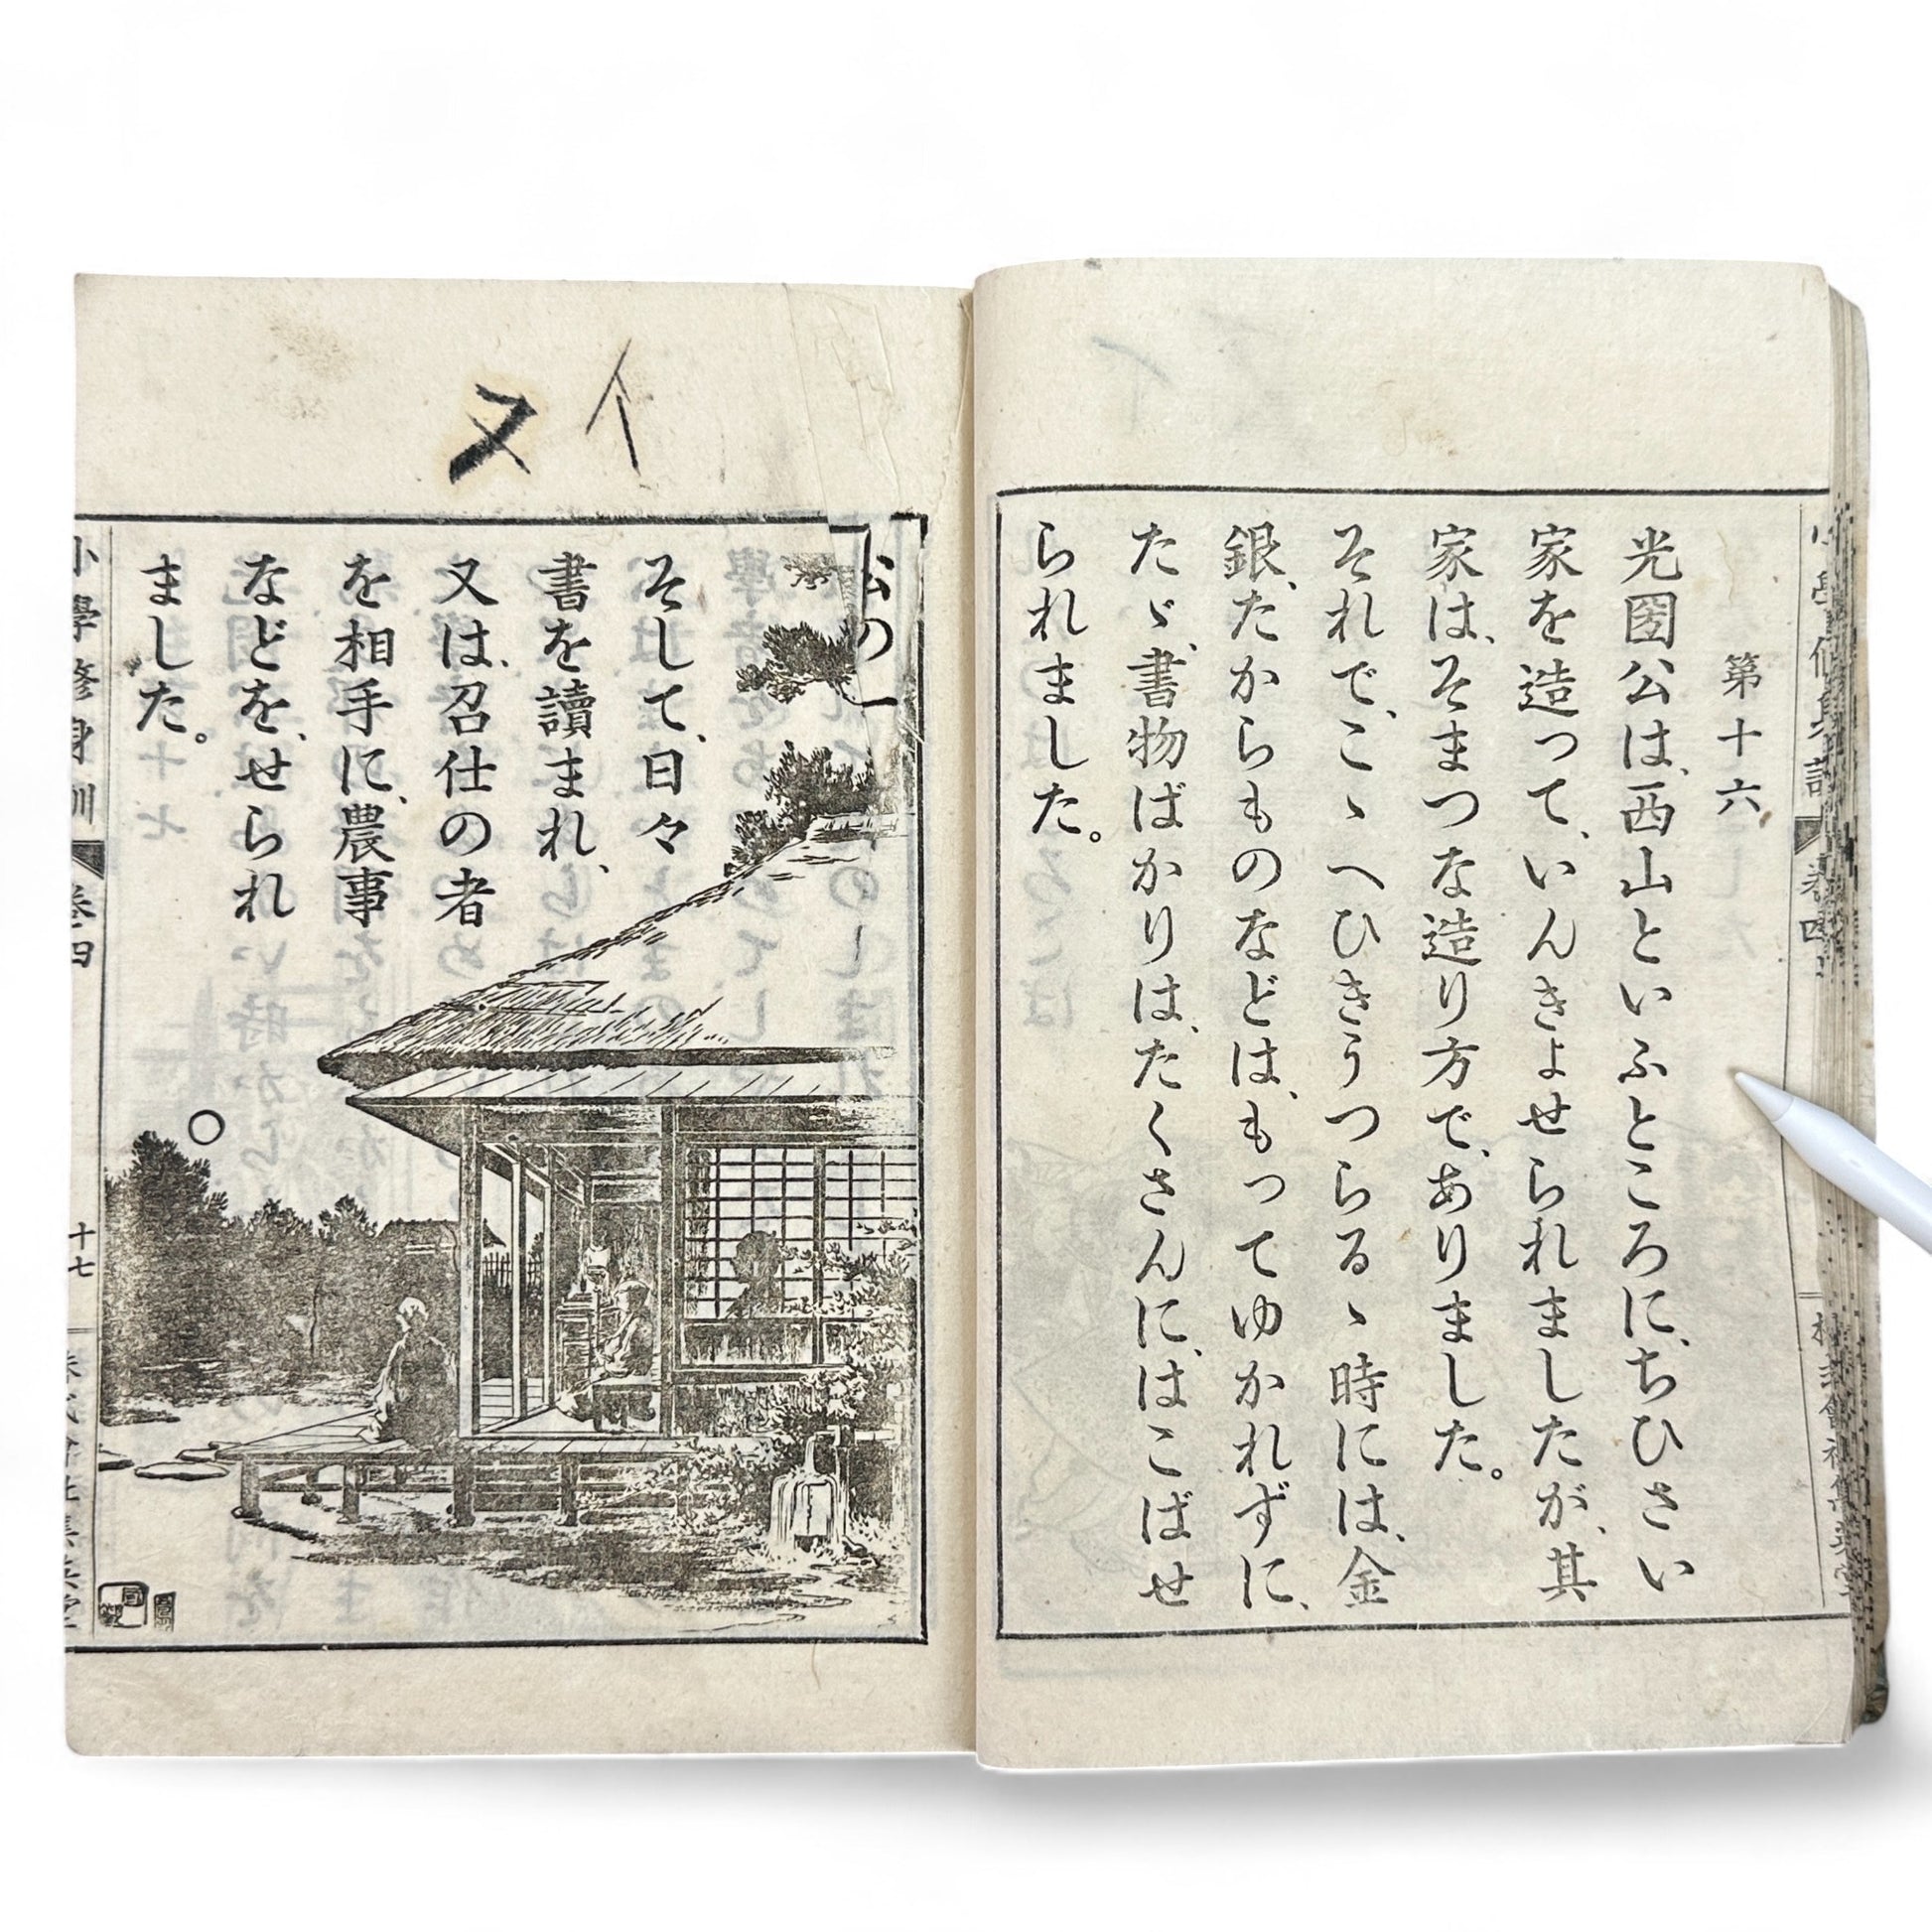 第十六
光圀公は、西山といふところに、ちひさい
家を造つて、いんきよせられましたが、其
家は、そまつな造り方で、ありました。
それで、こゝへひきうつらるゝ時には、金
銀、たからものなどは、もつてゆかれずに、
たゞ、書物ばかりは、たくさんに、はこばせ
られました。
イ
ヌ
の一
そして、日々
書を讀まれ、
又は、召仕の者
を相手に、農事
などを、せられ
ました。
○
小學修身訓 巻四 十七